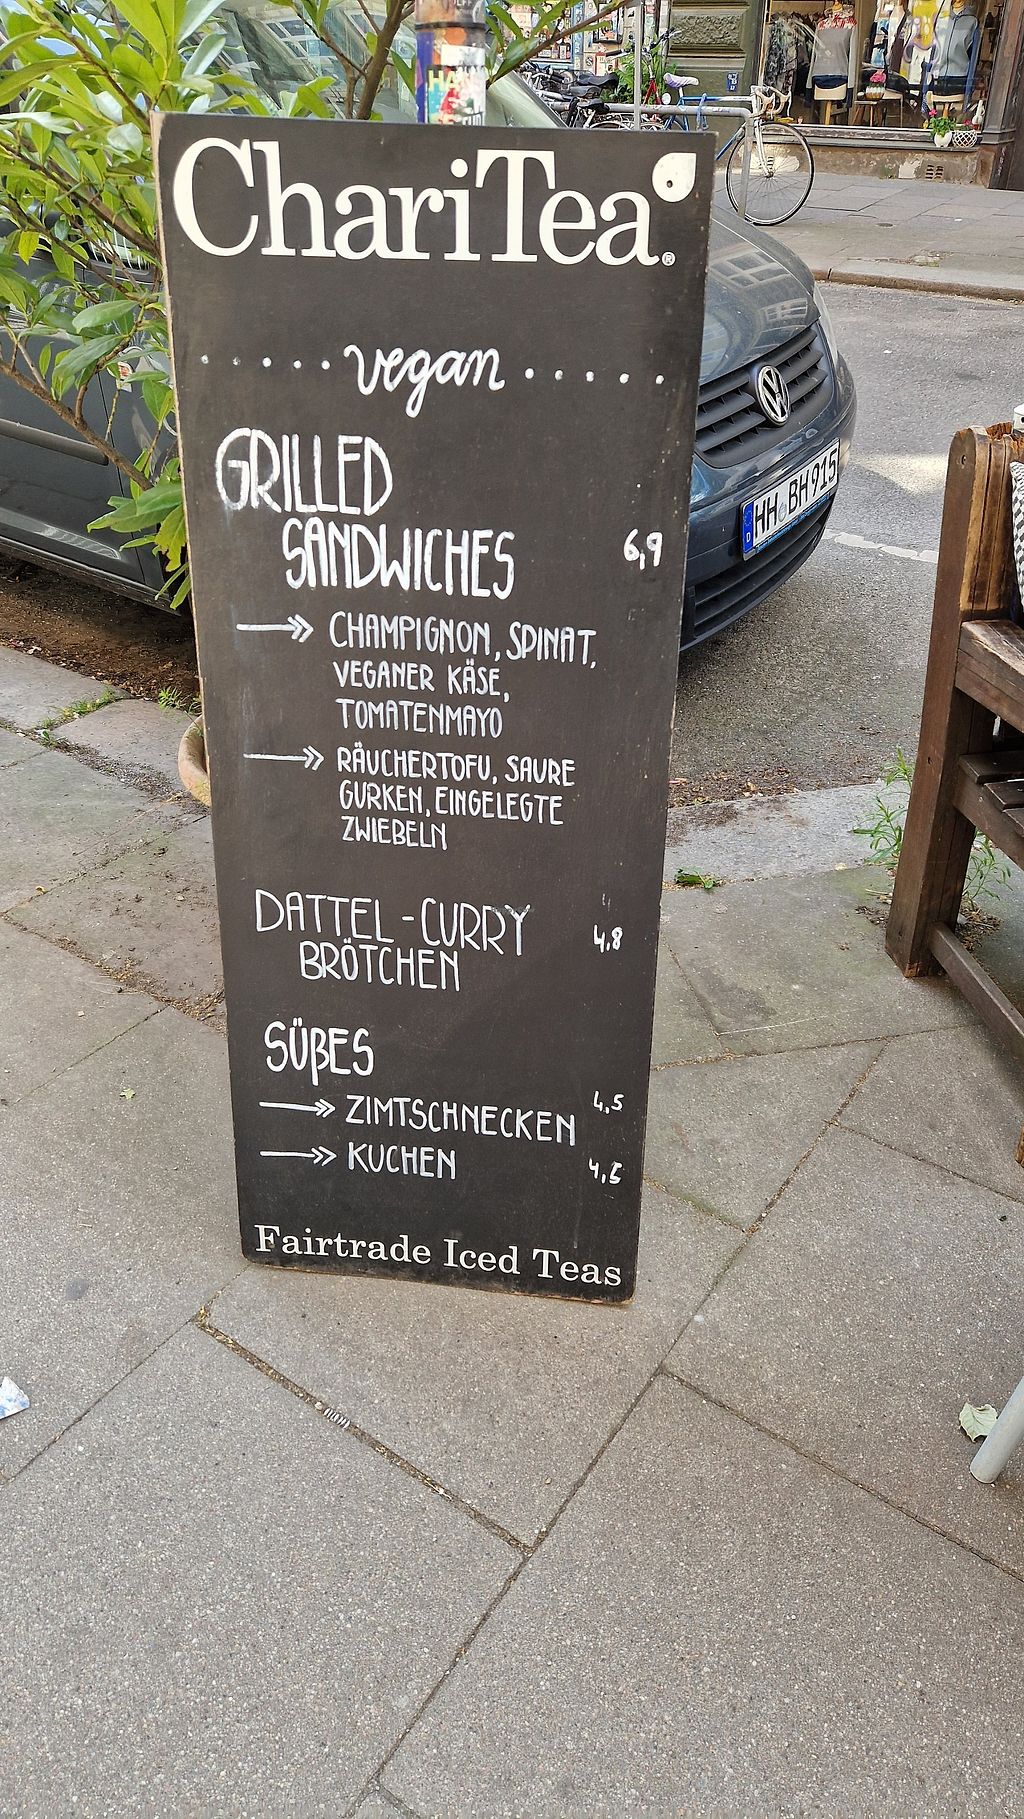 ChariTea®
.....vegan.....
GRILLED
SANDWICHES 6,9
CHAMPIGNON, SPINAT,
VEGANER KÄSE,
TOMATENMAYO
RÄUCHERTOFU, SAURE
GURKEN, EINGELEGTE
ZWIEBELN
DATTEL-CURRY 4,8
BRÖTCHEN
SÜßES
ZIMTSCHNECKEN 4,5
KUCHEN 4,5
Fairtrade Iced Teas
D HH BH 915